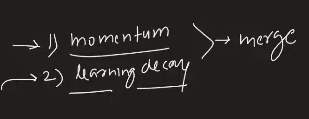 → 1) momentum
→ 2) learning decay
→ merge